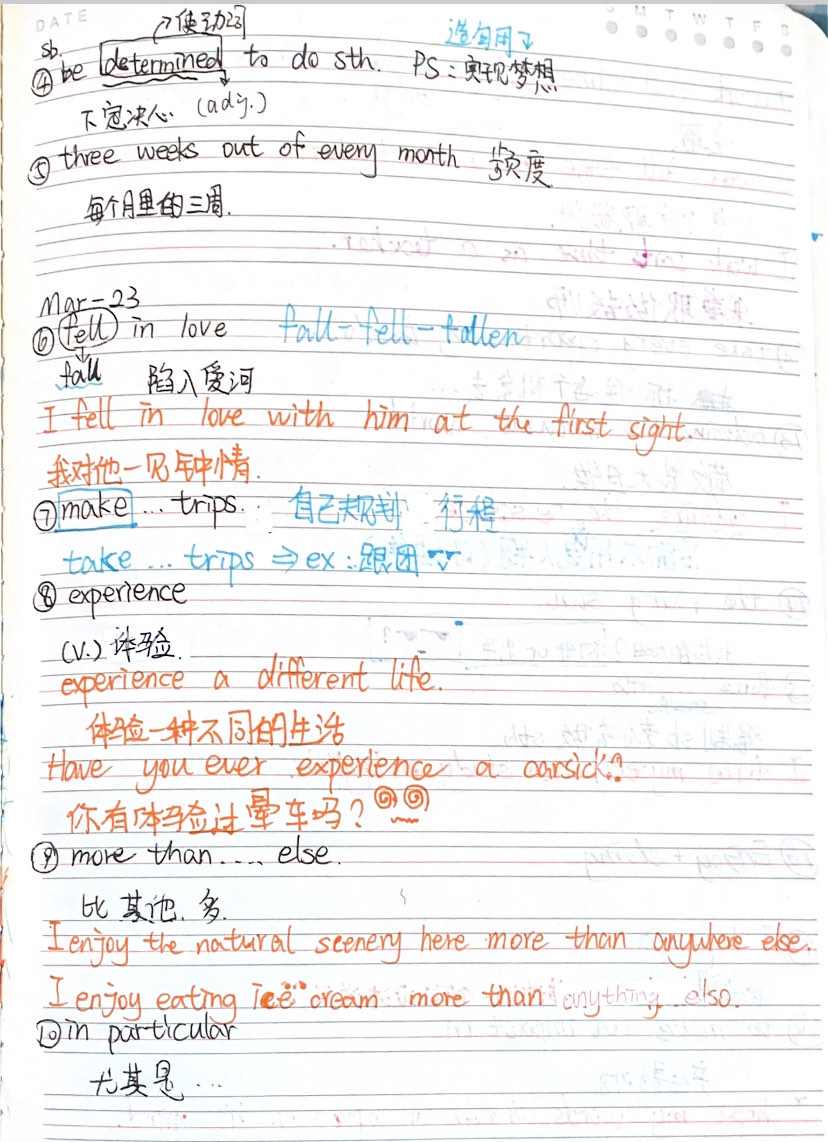 DATE
S F T W T M S
使动词
造句用
sb.
④ be determined to do sth. PS：实现梦想
下定决心 (adj.)
⑤ three weeks out of every month 频度
每个月里的三周.
Mar-23
⑥ fell in love fall-fell-fallen
fall 陷入爱河
I fell in love with him at the first sight.
我对他一见钟情.
⑦ make ... trips. 自己规划 行程
take ... trips ⇒ ex：跟团
⑧ experience
(v.) 体验.
experience a different life.
体验一种不同的生活
Have you ever experience a carsick?
你有体验过晕车吗？
⑨ more than .... else.
比其他.多.
I enjoy the natural scenery here more than anywhere else.
I enjoy eating ice cream more than anything else.
⑩ in particular
尤其是...